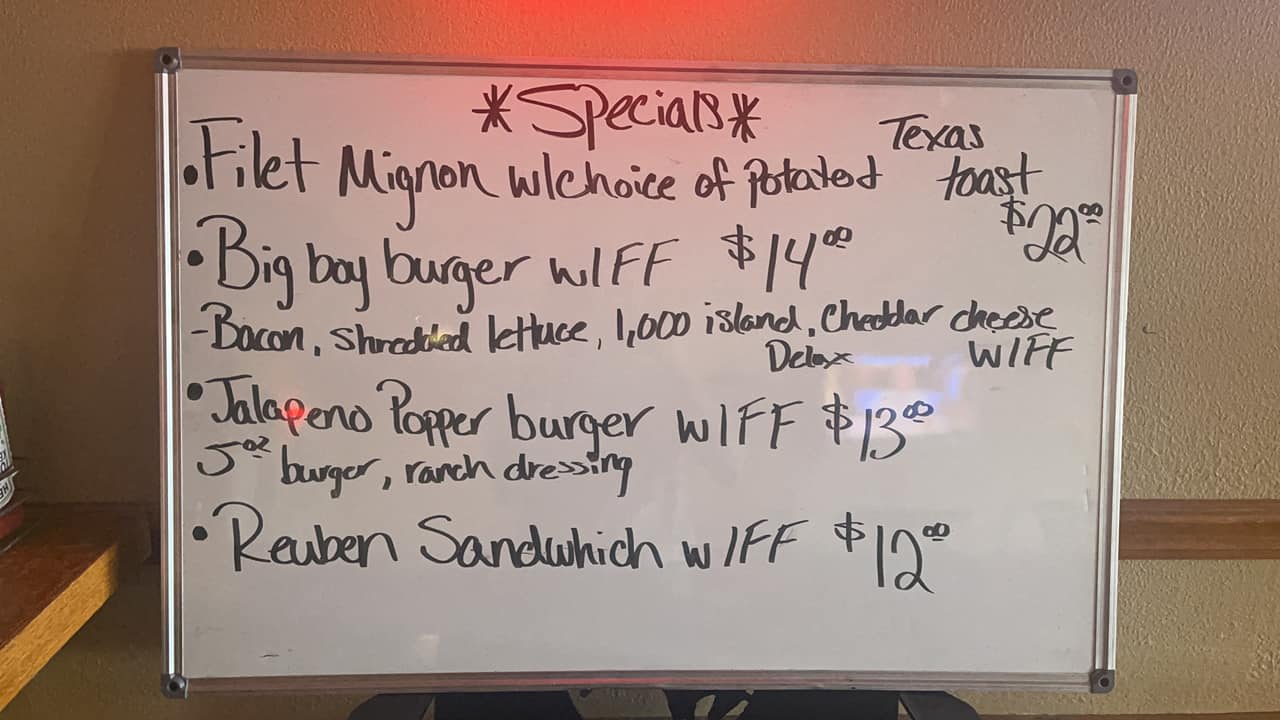 *Specials*
• Filet Mignon w/choice of Potatoes Texas toast
$22⁰⁰
• Big boy burger w/FF $14⁰⁰
-Bacon, shredded lettuce, 1,000 island, Cheddar cheese
Delax W/FF
• Jalapeno Popper burger w/FF $13⁰⁰
5 oz burger, ranch dressing
• Reuben Sandwhich w/FF $12⁰⁰